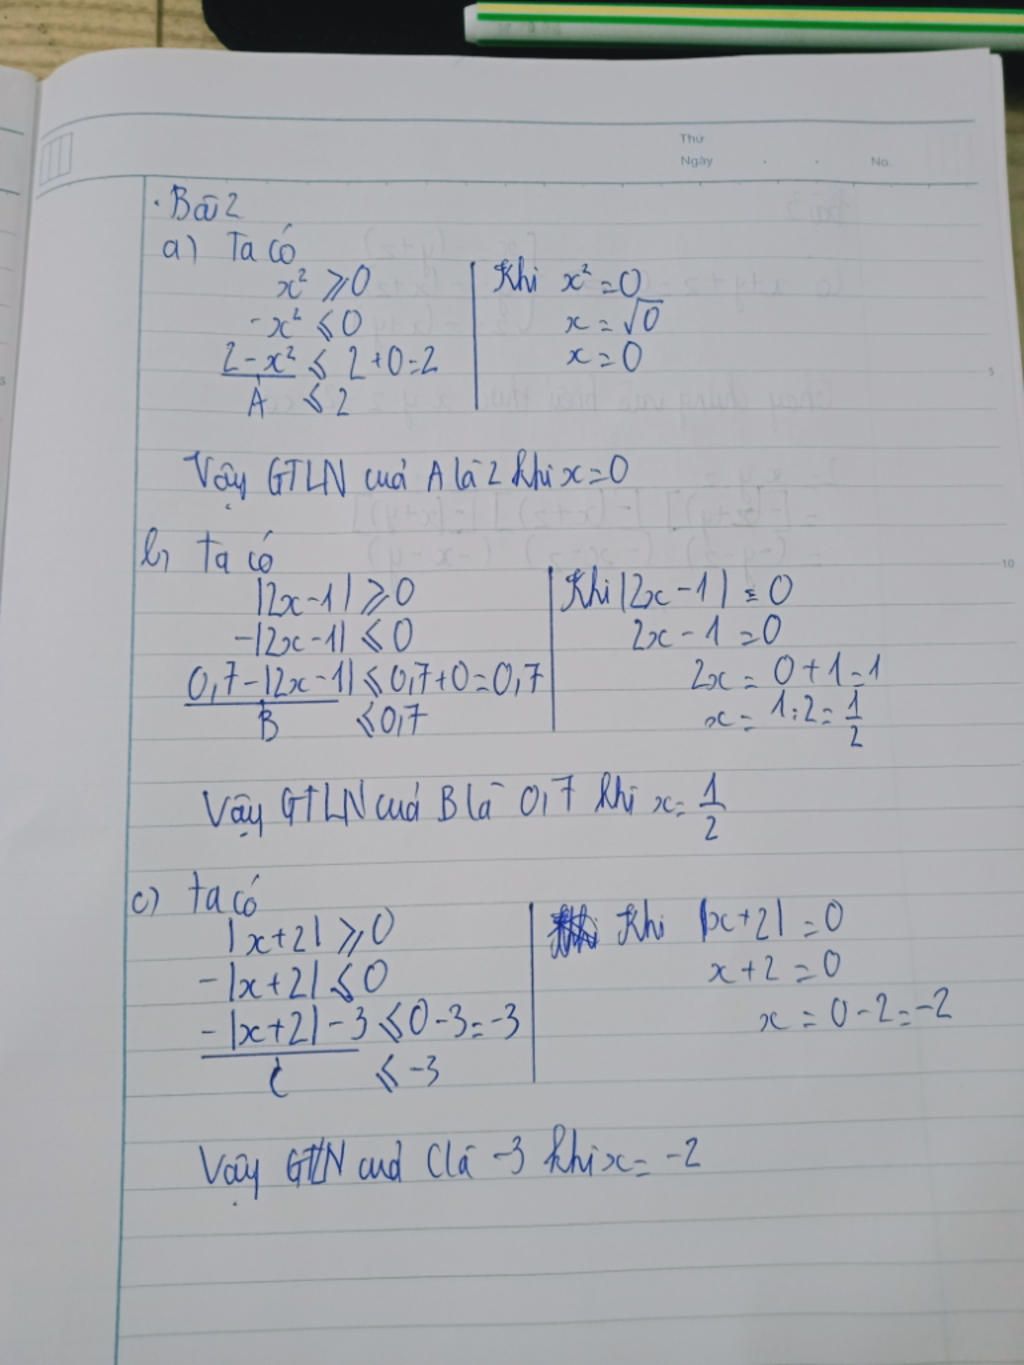 Thứ
Ngày . . No.
. Bài 2
a) Ta có
x² ⩾ 0
-x² ⩽ 0
2 - x² ⩽ 2 + 0 = 2
A ⩽ 2
Khi x² = 0
x = √0
x = 0
Vậy GTLN của A là 2 khi x = 0
b) Ta có
|2x - 1| ⩾ 0
-|2x - 1| ⩽ 0
0,7 - |2x - 1| ⩽ 0,7 + 0 = 0,7
B ⩽ 0,7
Khi |2x - 1| = 0
2x - 1 = 0
2x = 0 + 1 = 1
x = 1 : 2 = 1/2
Vậy GTLN của B là 0,7 khi x = 1/2
c) Ta có
|x + 2| ⩾ 0
-|x + 2| ⩽ 0
-|x + 2| - 3 ⩽ 0 - 3 = -3
C ⩽ -3
Khi |x + 2| = 0
x + 2 = 0
x = 0 - 2 = -2
Vậy GTLN của C là -3 khi x = -2
5
10